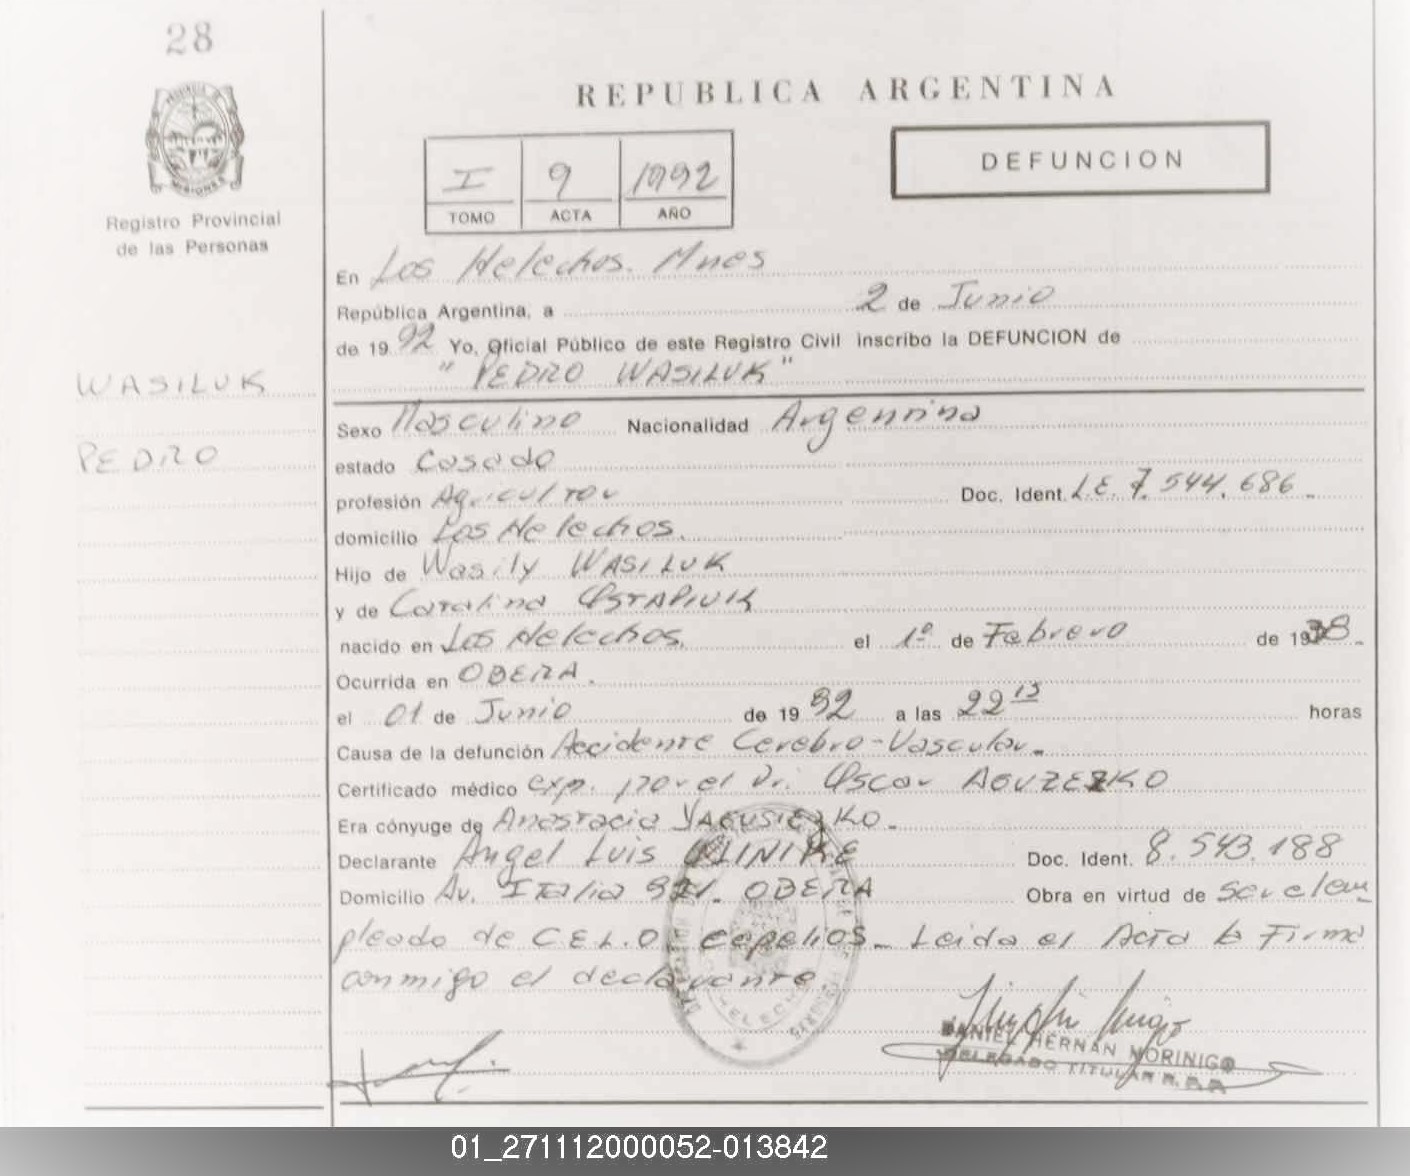 28
REPUBLICA ARGENTINA
DEFUNCION
I 9 1992
TOMO ACTA AÑO
PROVINCIA
MISIONES
Registro Provincial
de las Personas
En Los Helechos. Mnes
República Argentina, a 2 de Junio
de 1992 Yo, Oficial Público de este Registro Civil inscribo la DEFUNCION de
" PEDRO WASILUK "
WASILUK
PEDRO
Sexo Masculino Nacionalidad Argentina
estado Casado
profesión Agricultor Doc. Ident. L.E. 7.544.686.
domicilio Los Helechos.
Hijo de Wasily WASILUK
y de Catalina OSTAPIUK
nacido en Los Helechos. el 1º de Febrero de 1938.
Ocurrida en OBERA.
el 01 de Junio de 1992 a las 22 15 horas
Causa de la defunción Accidente Cerebro-Vascular.
Certificado médico exp. por el Dr. Oscar AGUZEZKO
Era cónyuge de Anastacia YACUSIEZKO.
Declarante Angel Luis Doc. Ident. 8.543.188
Domicilio Av. Italia OBERA Obra en virtud de ser el em
pleado de C.E.L.O. cepelios. Leida el Acta la Firma
conmigo el declarante
HELECHOS
DANIEL HERNAN MORINIGO
DELEGADO TITULAR R.P.P.
01_271112000052-013842